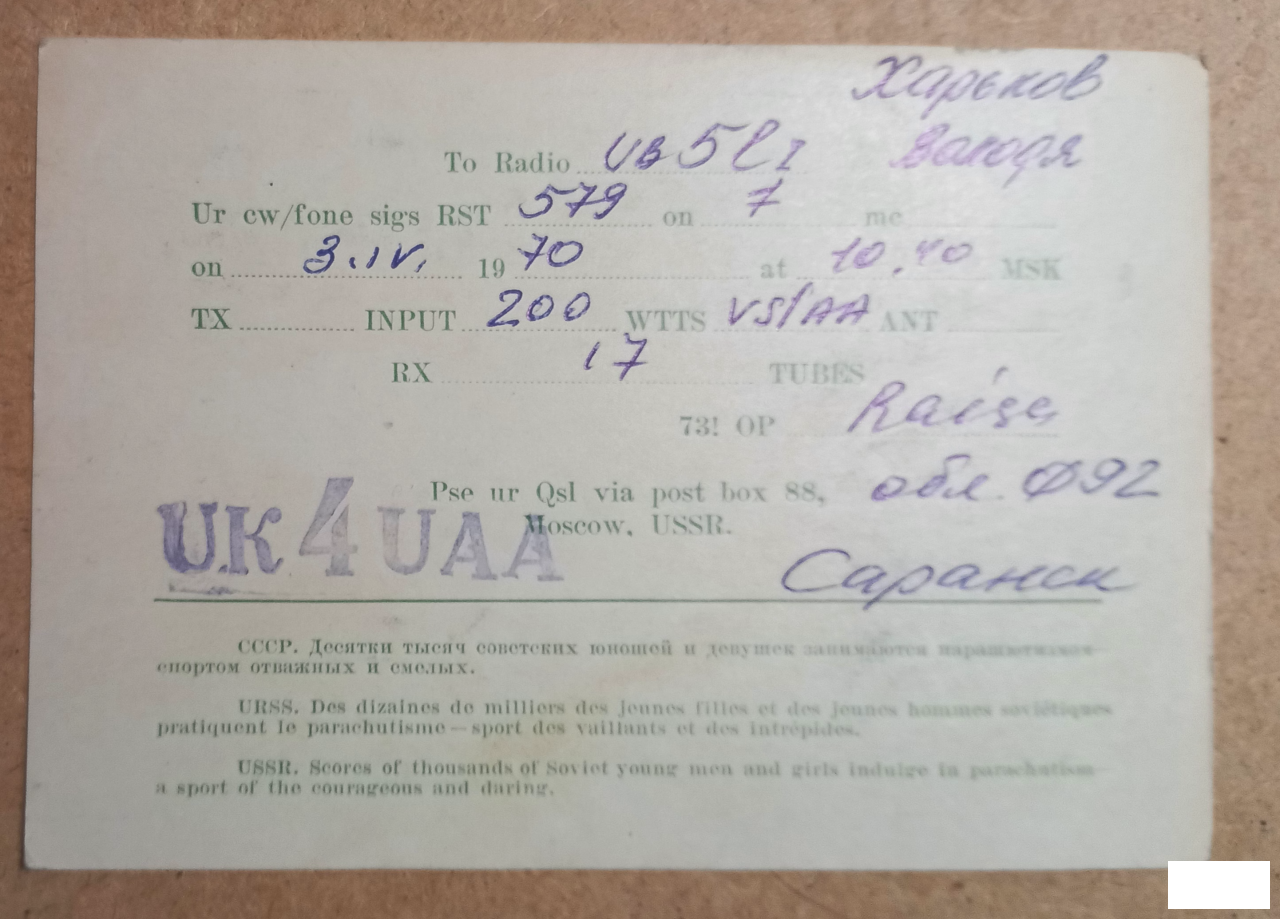 Харьков
Володя
To Radio UB5LI
Ur cw/fone sigs RST 579 on 7 mc
on 3.IV. 1970 at 10.40 MSK
TX INPUT 200 WTTS VS1AA ANT
RX 17 TUBES
73! OP Raisa
Pse ur Qsl via post box 88, обл. Ø92
Moscow, USSR.
UK4UAA
Саранск
СССР. Десятки тысяч советских юношей и девушек занимаются парашютизмом—
спортом отважных и смелых.
URSS. Des dizaines de milliers des jeunes filles et des jeunes hommes soviétiques
pratiquent le parachutisme — sport des vaillants et des intrépides.
USSR. Scores of thousands of Soviet young men and girls indulge in parachutism—
a sport of the courageous and daring.